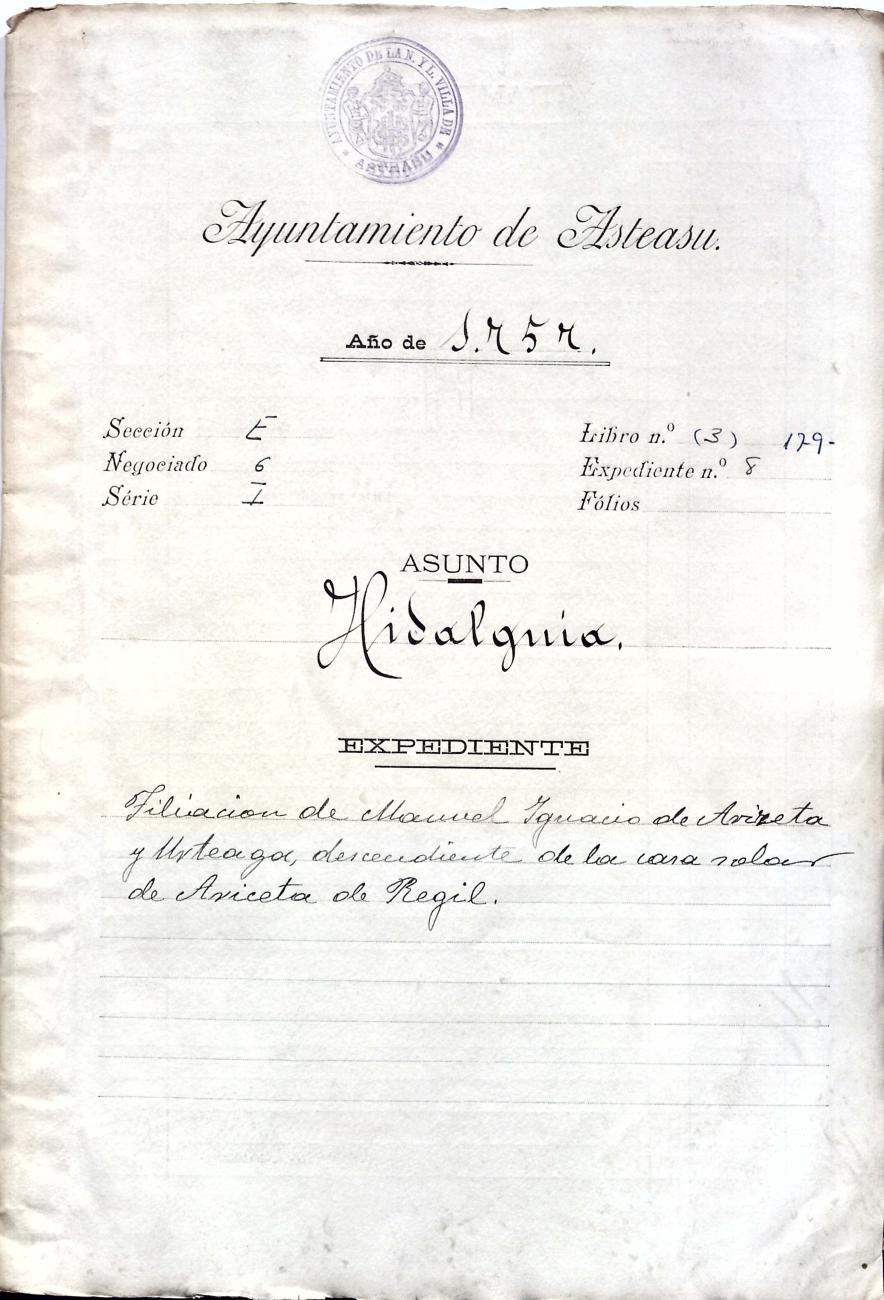 AYUNTAMIENTO DE LA N. Y L. VILLA DE
ASTEASU
Ayuntamiento de Asteasu.
Año de 1.757.
Sección E
Negociado 6
Série I
Libro n.º (3) 129-
Expediente n.º 8
Fólios
ASUNTO
Hidalguia.
EXPEDIENTE
Filiacion de Manuel Ignacio de Arizeta
y Urteaga, descendiente de la casa solar
de Ariceta de Regil.